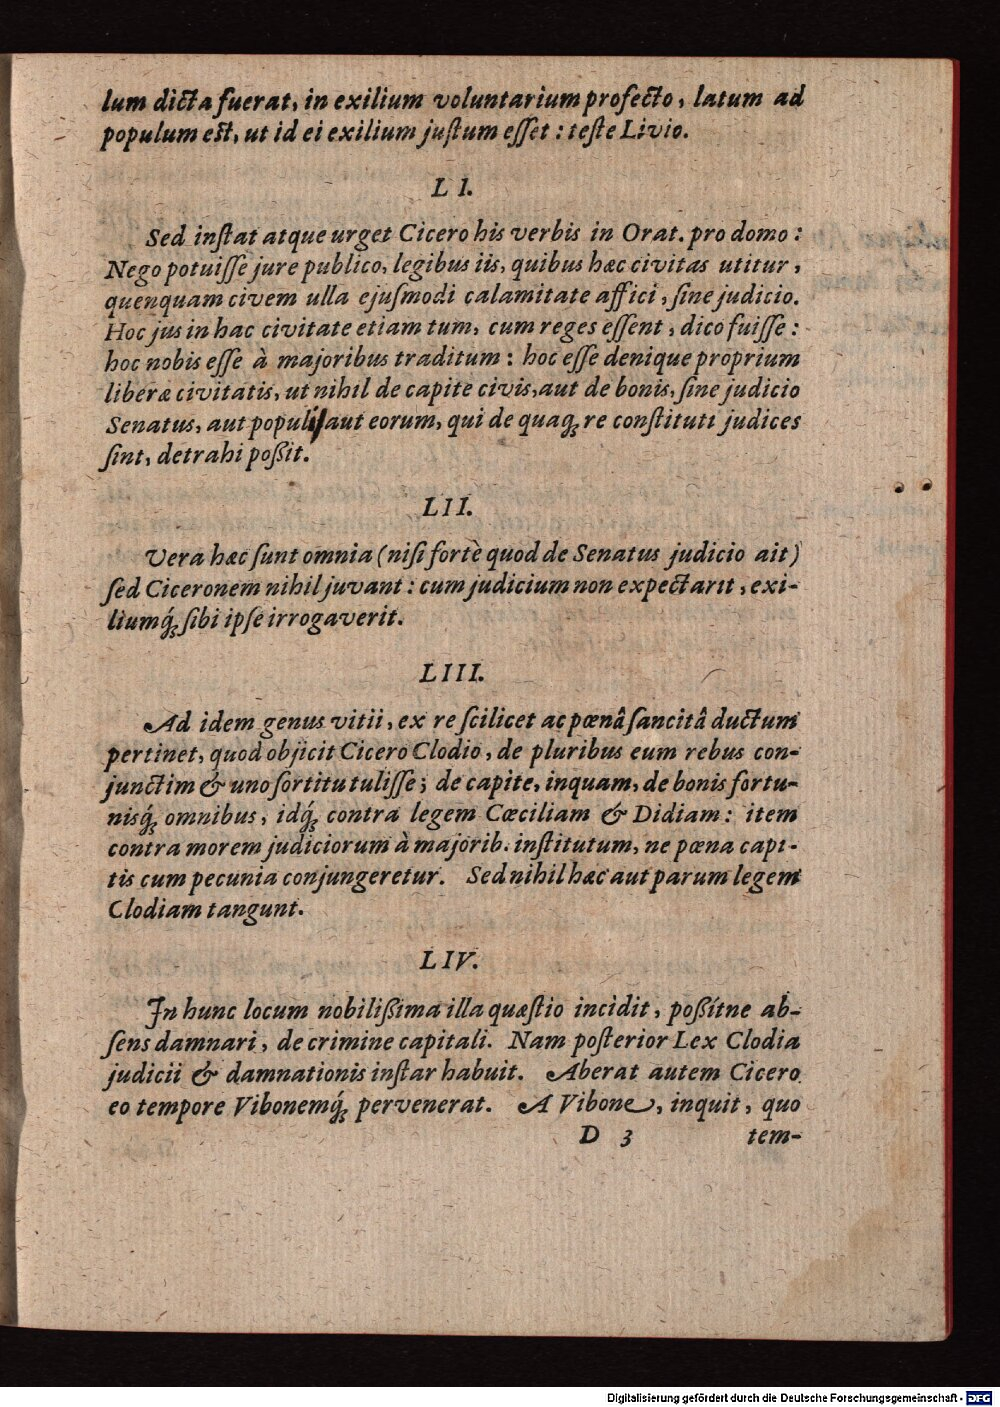 lum dicta fuerat, in exilium voluntarium profecto, latum ad
populum est, ut id ei exilium juſtum eſſet : teſte Livio.
L I.
Sed inſtat atque urget Cicero his verbis in Orat. pro domo :
Nego potuiſſe jure publico, legibus iis, quibus hæc civitas utitur,
quenquam civem ulla ejuſmodi calamitate affici, ſine judicio.
Hoc jus in hac civitate etiam tum, cum reges eſſent, dico fuiſſe :
hoc nobis eſſe à majoribus traditum : hoc eſſe denique proprium
liberæ civitatis, ut nihil de capite civis, aut de bonis, ſine judicio
Senatus, aut populi, aut eorum, qui de quaq́ꝫ re conſtituti judices
ſint, detrahi poßit.
LII.
Vera hæc ſunt omnia (niſi fortè quod de Senatus judicio ait)
ſed Ciceronem nihil juvant : cum judicium non expectarit, exi-
liumq́ꝫ ſibi ipſe irrogaverit.
LIII.
Ad idem genus vitii, ex re ſcilicet ac pœnâ ſancitâ ductum
pertinet, quod objicit Cicero Clodio, de pluribus eum rebus con-
junctim & uno ſortitu tuliſſe; de capite, inquam, de bonis fortu-
nisq́ꝫ omnibus, idq́ꝫ contra legem Cæciliam & Didiam : item
contra morem judiciorum à majorib. inſtitutum, ne pœna capi-
tis cum pecunia conjungeretur. Sed nihil hæc aut parum legem
Clodiam tangunt.
LIV.
In hunc locum nobilißima illa quæſtio incidit, poßítne ab-
ſens damnari, de crimine capitali. Nam poſterior Lex Clodia
judicii & damnationis inſtar habuit. Aberat autem Cicero
eo tempore Vibonemq́ꝫ pervenerat. A Vibone, inquit, quo
D 3 tem-
Digitalisierung gefördert durch die Deutsche Forschungsgemeinschaft - DFG